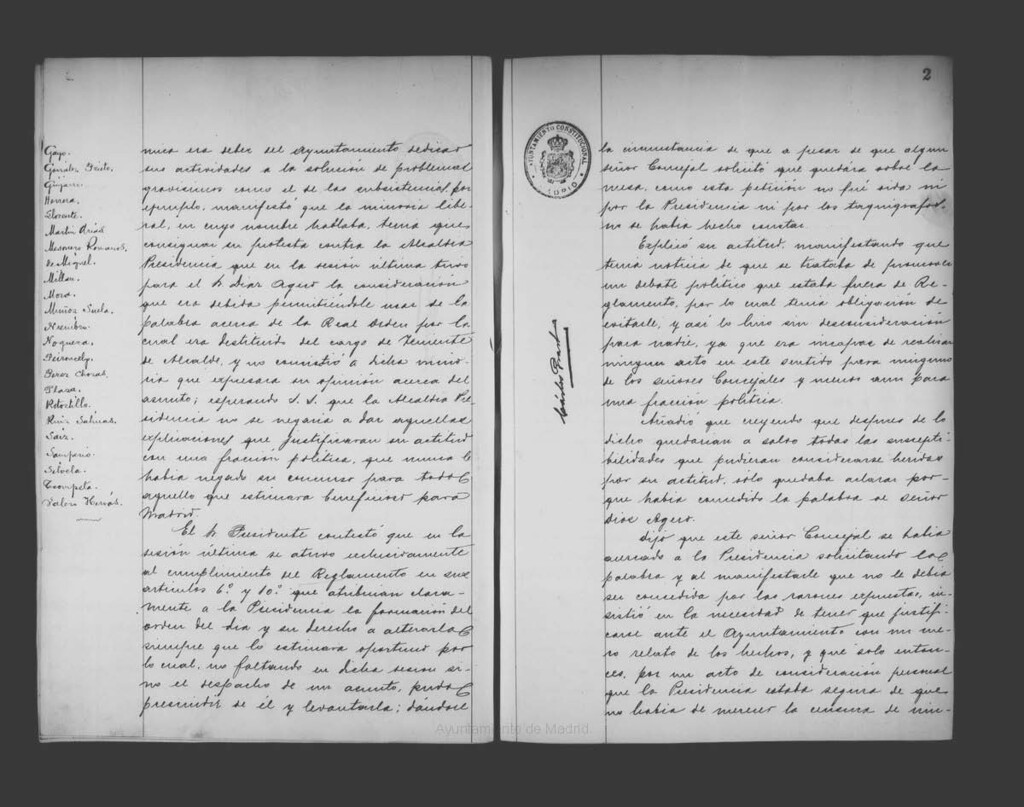 Gayo.
González Prieto.
Guijarro.
Herrera.
Llorente.
Martín Arias
Mesonero Romanos.
de Miguel.
Millan.
Mora.
Muñoz
Noguera.
Peironcely.
Perez Chozas.
Plaza.
Retortillo.
Ruiz Salinas.
Saiz.
Samperio.
Silvela.
Trompeta.
Valero Hervás.
mica era deber del Ayuntamiento dedicar
sus actividades a la solución de problemas
gravisimos como el de las subsistencias, por
ejemplo, manifestó que la minoria libe-
ral, en cuyo nombre hablaba, tenia que
consignar su protesta contra la Alcaldia
Presidencia que en la sesión última tuvo
para el Sr. Diaz Agero la consideración
que era debida permitiéndole usar de la
palabra acerca de la Real Orden por la
cual era destituido del cargo de Teniente
de Alcalde, y no consintió a dicha mino-
ria que expresara su opinión acerca del
asunto; esperando S.S. que la Alcaldia Pre-
sidencia no se negaria a dar aquellas
explicaciones que justificaran su actitud
con una fracción politica, que nunca le
habia negado su concurso para todo
aquello que estimara beneficioso para
Madrid.
El Sr. Presidente contestó que en la
sesión última se atuvo exclusivamente
al cumplimiento del Reglamento en sus
artículos 6º y 10º que atribuian clara-
mente a la Presidencia la formación del
orden del dia y su derecho a alterarla
siempre que lo estimara oportuno por
lo cual, no faltando en dicha sesion si-
no el despacho de un asunto, pudo
prescindir de él y levantarla; dándose
2
AYUNTAMIENTO CONSTITUCIONAL
Carlos Prast
la circunstancia de que a pesar de que algun
señor Concejal solicitó que quedara sobre la
mesa, como esta petición no fué oida ni
por la Presidencia ni por los taquigrafos
no se habia hecho constar.
Explicó su actitud, manifestando que
tenia noticia de que se trataba de promover
un debate politico que estaba fuera de Re-
glamento, por lo cual tenia obligación de
evitarle, y así lo hizo sin desconsideración
para nadie, ya que era incapaz de realizar
ningun acto en este sentido para ninguno
de los señores Concejales y menos aun para
una fracción politica.
Añadió que creyendo que despues de lo
dicho quedarian a salvo todas las suscepti-
bilidades que pudieran considerarse heridas
por su actitud, sólo quedaba aclarar por-
que habia concedido la palabra al señor
Diaz Agero.
Dijo que este señor Concejal se habia
acercado a la Presidencia solicitando la
palabra y al manifestarle que no le debia
ser concedida por las razones expuestas, in-
sistió en la necesidad de tener que justifi-
carse ante el Ayuntamiento con un me-
ro relato de los hechos, y que solo enton-
ces, por un acto de consideración personal
que la Presidencia estaba segura de que
no habia de merecer la censura de nin-
Ayuntamiento de Madrid